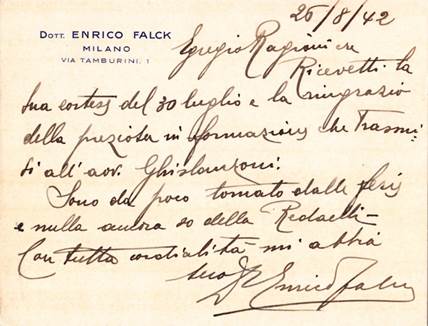 Dott. ENRICO FALCK
MILANO
VIA TAMBURINI, 1
26/8/42
Egregio Ragioniere
Ricevetti la
Sua cortese del 30 luglio e la ringrazio
della preziosa informazione che Trasmi-
si all'avv. Ghislanzoni.
Sono da poco tornato dalle ferie
e nulla ancora so della Redaelli-
Con tutta cordialità mi abbia
suo Dr Enrico Falck